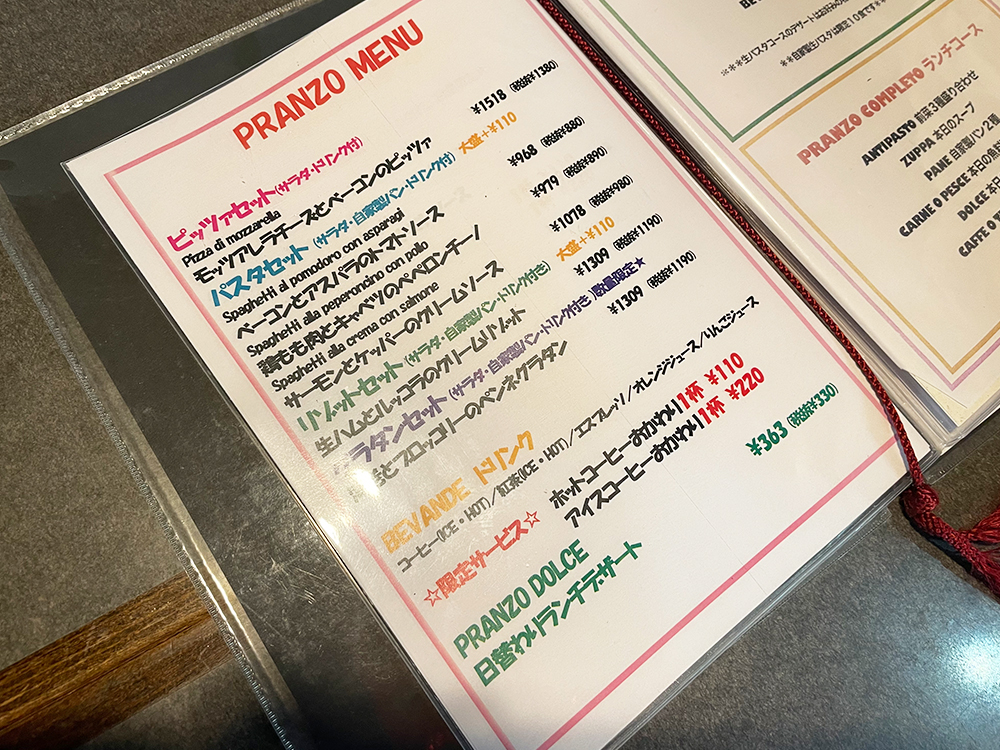 PRANZO MENU
ピッツァセット(サラダ・ドリンク付)
Pizza di mozzarella
モッツアレラチーズとベーコンのピッツァ ¥1518 (税抜¥1380)
パスタセット (サラダ・自家製パン・ドリンク付) 大盛+¥110
Spaghetti al pomodoro con asparagi
ベーコンとアスパラのトマトソース ¥968 (税抜¥880)
Spaghetti alla peperoncino con pollo
鶏もも肉とキャベツのペペロンチーノ ¥979 (税抜¥890)
Spaghetti alla crema con salmone
サーモンとケッパーのクリームソース ¥1078 (税抜¥980)
リゾットセット (サラダ・自家製パン・ドリンク付き) 大盛+¥110
生ハムとルッコラのクリームリゾット ¥1309 (税抜¥1190)
グラタンセット (サラダ・自家製パン・ドリンク付き)数量限定★
とブロッコリーのペンネグラタン ¥1309 (税抜¥1190)
BEVANDE ドリンク
コーヒー(ICE・HOT)/紅茶(ICE・HOT)/エスプレッソ/オレンジジュース/りんごジュース
☆限定サービス☆ ホットコーヒーおかわり1杯 ¥110
アイスコーヒーおかわり1杯 ¥220
PRANZO DOLCE
日替わりランチデザート ¥363 (税抜¥330)
※※※生パスタコースのデザートはお好みの
※※自家製生パスタは限定10食です※※
PRANZO COMPLETO ランチコース
ANTIPASTO 前菜3種盛り合わせ
ZUPPA 本日のスープ
PANE 自家製パン2種
CARNE O PESCE 本日の魚
DOLCE 本日
CAFFE O